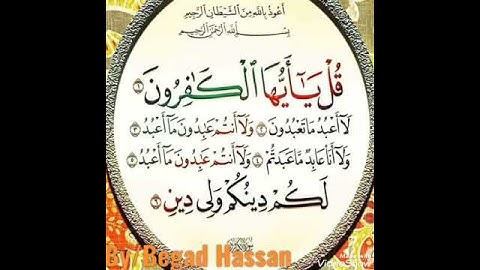 أَعُوذُ بِاللَّهِ مِنَ الشَّيْطَانِ الرَّجِيمِ
بِسْمِ اللَّهِ الرَّحْمَٰنِ الرَّحِيمِ
قُلْ يَا أَيُّهَا الْكَافِرُونَ ١
لَا أَعْبُدُ مَا تَعْبُدُونَ ٢ وَلَا أَنْتُمْ عَابِدُونَ مَا أَعْبُدُ ٣
وَلَا أَنَا عَابِدٌ مَّا عَبَدْتُمْ ٤ وَلَا أَنْتُمْ عَابِدُونَ مَا أَعْبُدُ ٥
لَكُمْ دِينُكُمْ وَلِيَ دِينِ ٦
By/Begad Hassan
Made with
VideoShow